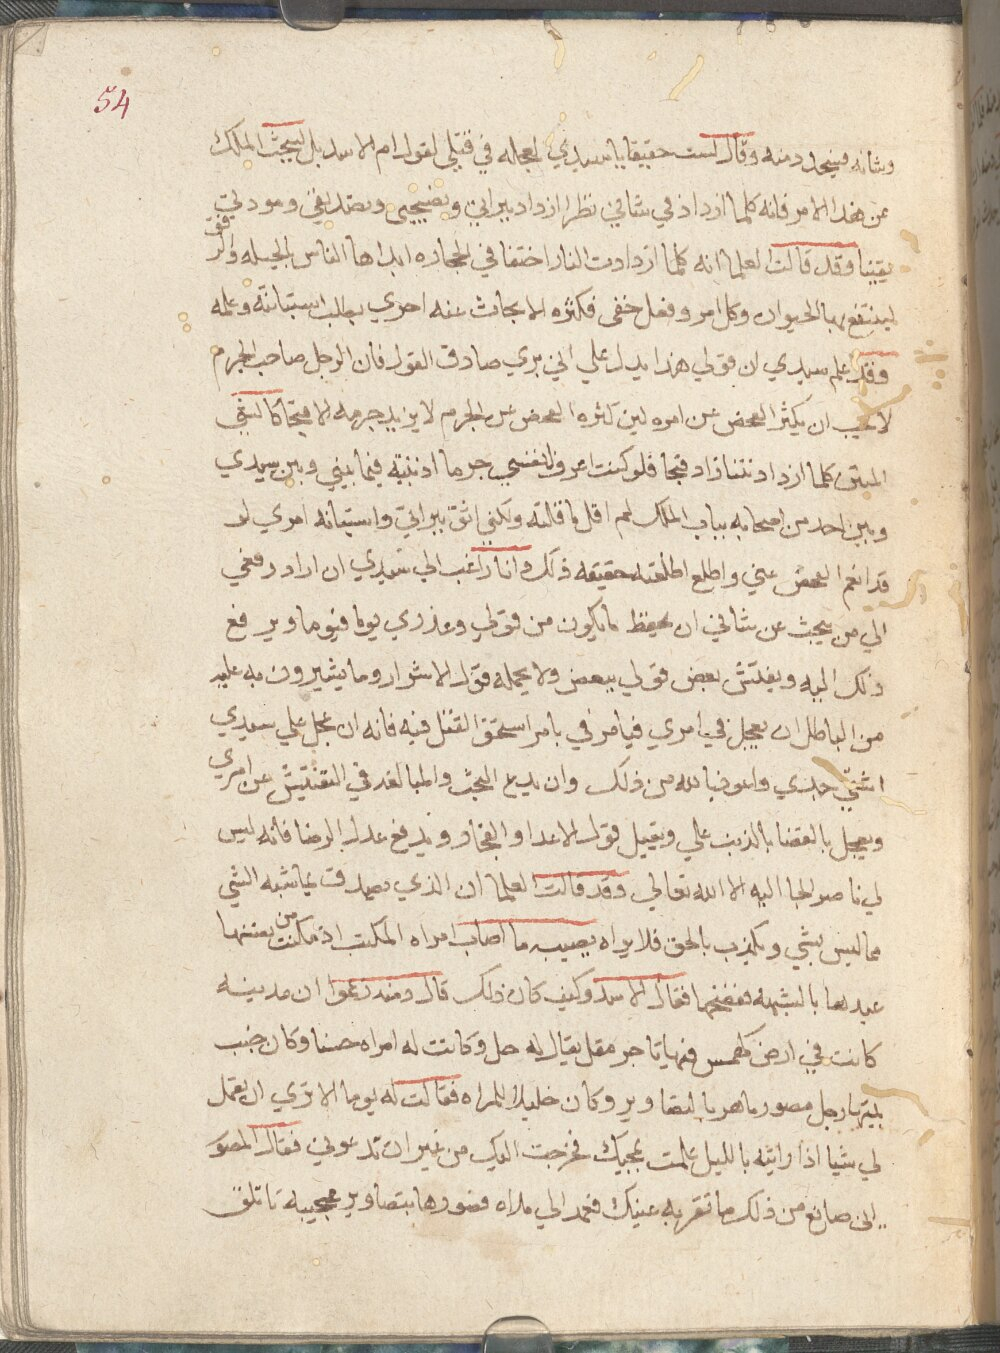 54
وشانه فيتحدد منه وقال لست حقيقا يا سيدي لعجله في قتلي لقول ام الاسد بل ليبحث الملك
عن هذا الامر فانه كلما ازداد في شاني نظرا ازداد ببراتي ونصيحتي وبصدقي ومودتي
يقينا وقد قالت العلما انه كلما ازدادت النار اختفا في الحجاره ابداها الناس بالحيله والرفق
لينتفع بها الحيوان وكل امر وفعل خفي فكثره الابحاث عنه احري بطلب استبانته وعلمه
وقد علم سيدي ان قولي هذا يدل علي اني بري صادق القول فان الرجل صاحب الجرم
لا يحب ان يكثر الفحص عن امره لين كثره الفحص عن الجرم لا يزيد جرمه الا قبحا كالشي
المنتن كلما ازداد نتنا زاد قبحا فلو كنت اعرف لنفسي جرما اذنبته فيما بيني وبين سيدي
وبين احد من اصحابه بباب الملك لم اقل ما قلته ولكني اثق ببراتي واستبانه امري لو
قد انعم الفحص عني واطلع اطلعته حقيقه ذلك وانا راغب الي سيدي ان اراد رفعي
الي من يبحث عن شاني ان يحفظ ما يكون من قولي وعذري يوما فيوما ويرفع
ذلك اليه ويفتش بعض قولي ببعض ولا يحمله قول الاشرار وما يشيرون به عليه
من الباطل ان يعجل في امري فيامر في بامر استحق القتل فيه فانه ان عجل علي سيدي
اشقي جدي واعوذ بالله من ذلك وان يدع البحث والمبالغه في التفتيش عن امري
ويعجل بالقضا بالذنب علي ويقبل قول الاعدا والفجار ويدفع عدل الرضا فانه ليس
لي ناصر الجا اليه الا الله تعالي وقد قالت العلما ان الذي يصدق بما شبه الشي
مما ليس بشي ويكذب بالحق فلا يراه يصيبه ما اصاب امراه المكتب اذ مكنت من نفسها
عبدها بالشبهه ففضحها فقال الاسد وكيف كان ذلك قال دمنه زعموا ان مدينه
كانت في ارض كهمس فيها تاجر مقل يقال له حل وكانت له امراه حسنا وكان جنب
بيتها رجل مصور ماهر بالتصاوير وكان خليلا للمراه فقالت له يوما الا تري ان تعمل
لي شيا اذا رايته بالليل علمت بمجيك فخرجت اليك من غير ان تدعوني فقال المصور
اني صانع من ذلك ما تقر به عينيك فعمد الي ملاه فصورها بتصاوير عجيبه